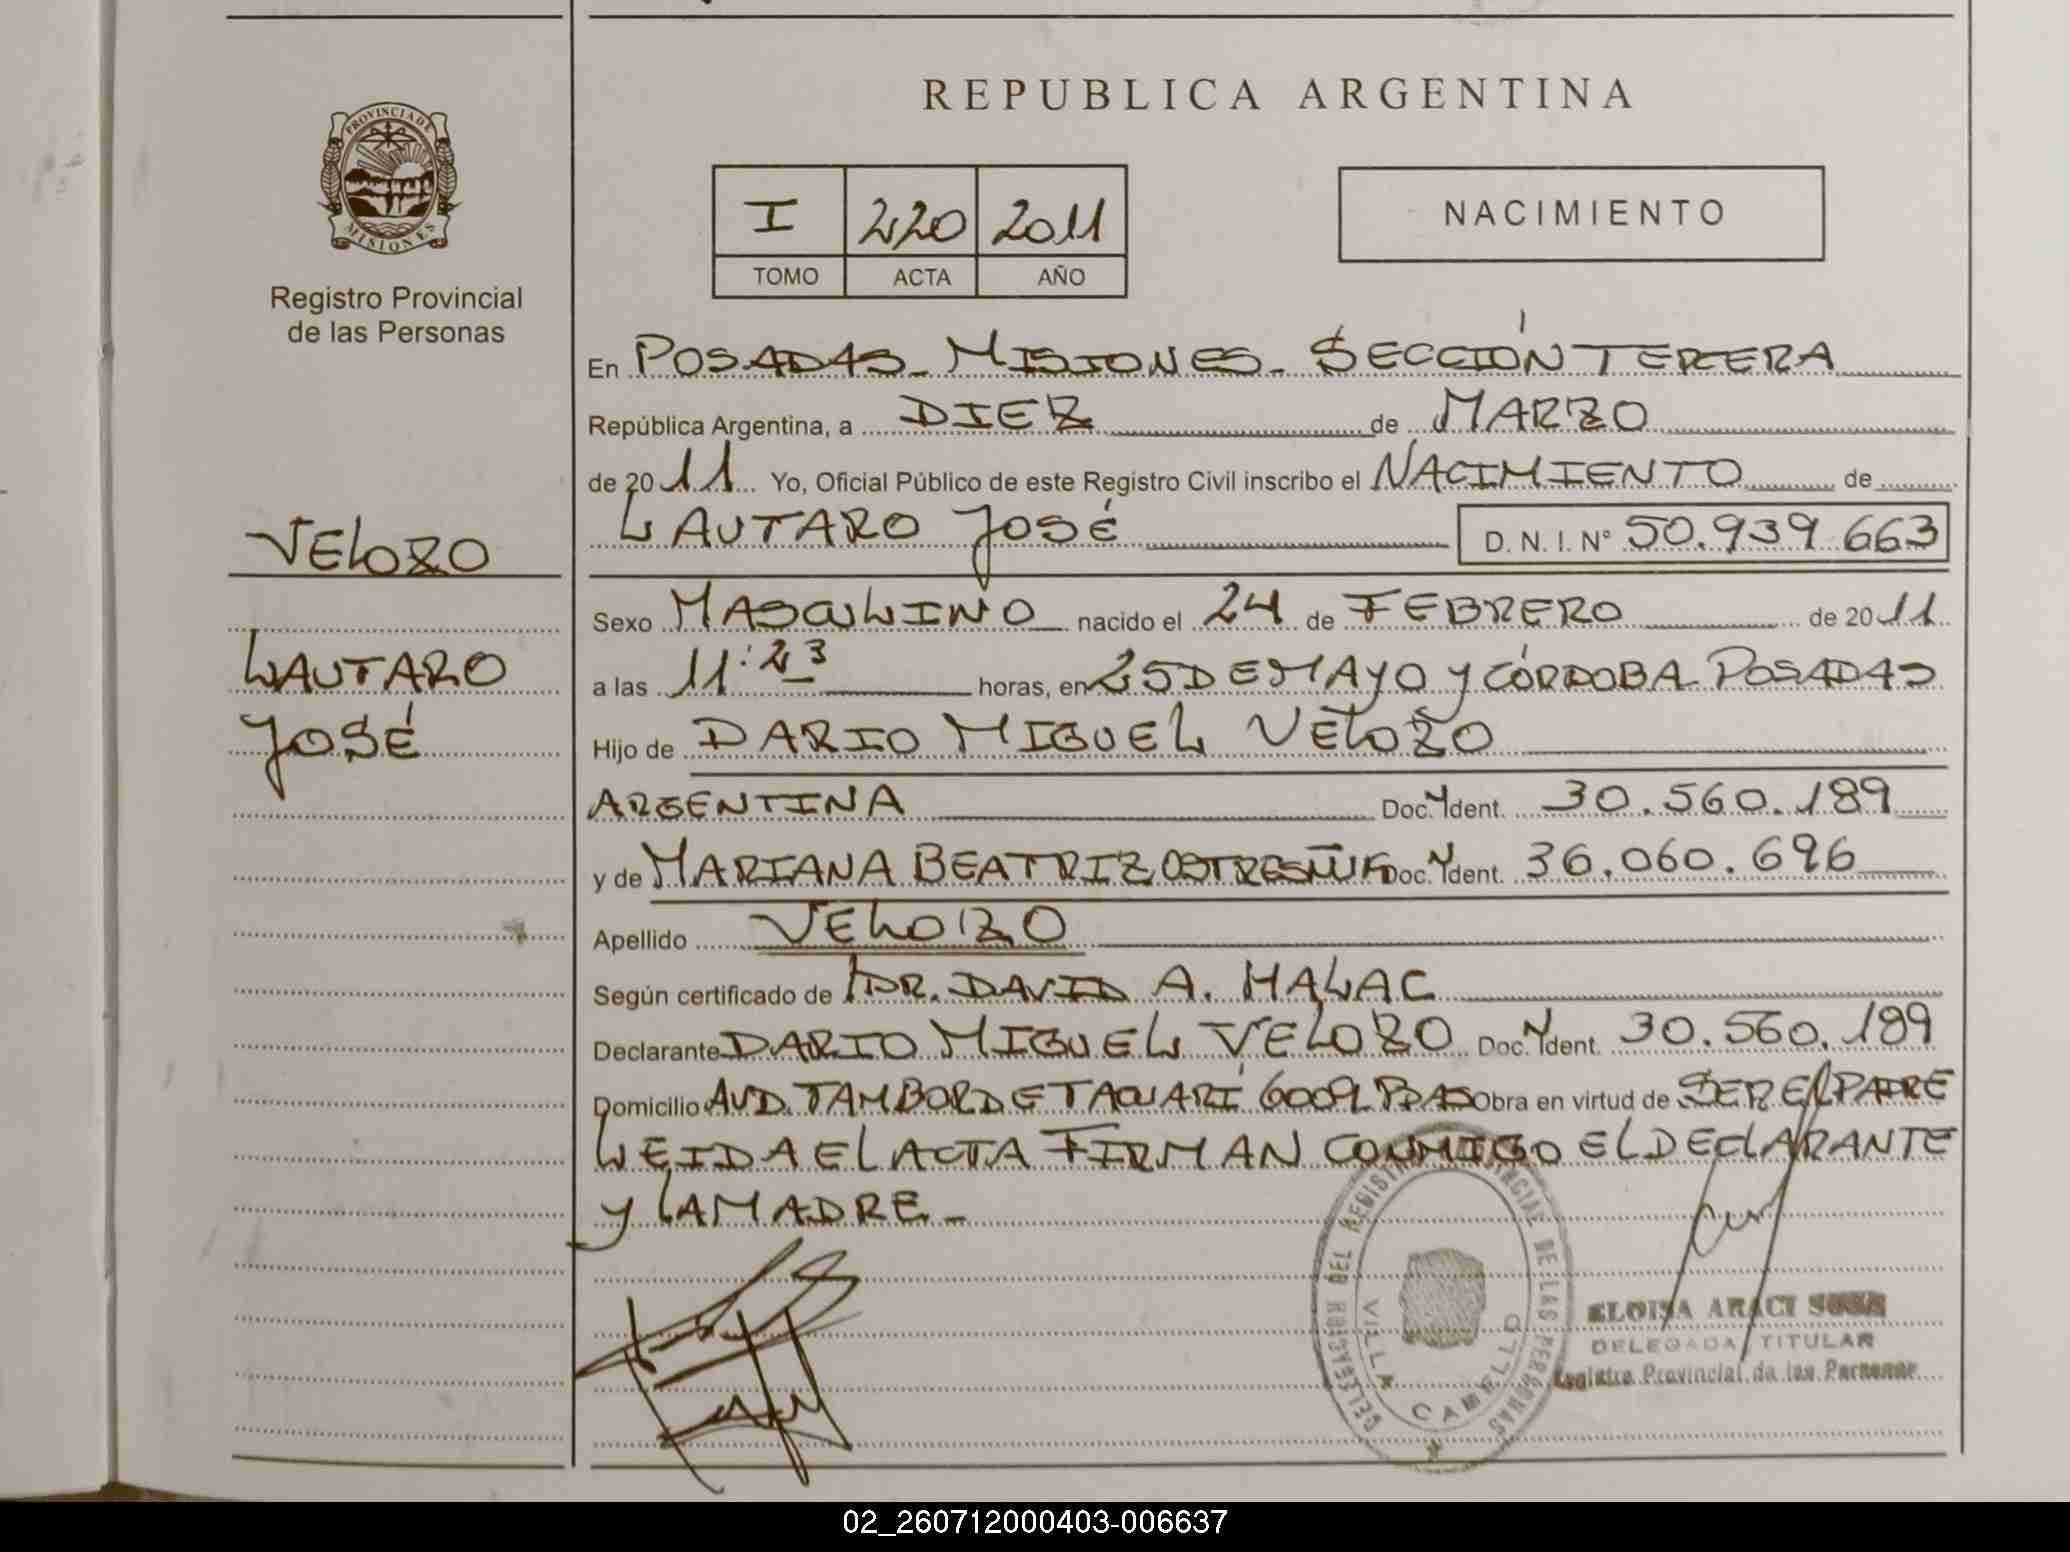 REPUBLICA ARGENTINA
PROVINCIA DE MISIONES
Registro Provincial
de las Personas
I 220 2011
TOMO ACTA AÑO
NACIMIENTO
En POSADAS - MISIONES - SECCIÓN TERCERA
República Argentina, a DIEZ de MARZO
de 2011 Yo, Oficial Público de este Registro Civil inscribo el NACIMIENTO de
LAUTARO JOSÉ D. N. I. N° 50.939.663
VELOZO
LAUTARO
JOSÉ
Sexo MASCULINO nacido el 24 de FEBRERO de 2011
a las 11:23 horas, en 25 DE MAYO Y CÓRDOBA - POSADAS
Hijo de DARIO MIGUEL VELOZO
ARGENTINA Doc. Ident. 30.560.189
y de MARIANA BEATRIZ Doc. Ident. 36.060.696
Apellido VELOZO
Según certificado de DR. DAVID A. MALAC
Declarante DARIO MIGUEL VELOZO Doc. Ident. 30.560.189
Domicilio AVD. TAMBOR DE TACUARÍ 6009 PDAS Obra en virtud de SER EL PADRE
LEIDA EL ACTA FIRMAN CONMIGO EL DECLARANTE
Y LA MADRE -
DELEGACION DEL REGISTRO PROVINCIAL DE LAS PERSONAS
VILLA CABELLO
ELOISA ARACI SOSA
DELEGADA TITULAR
Registro Provincial de las Personas
02_260712000403-006637